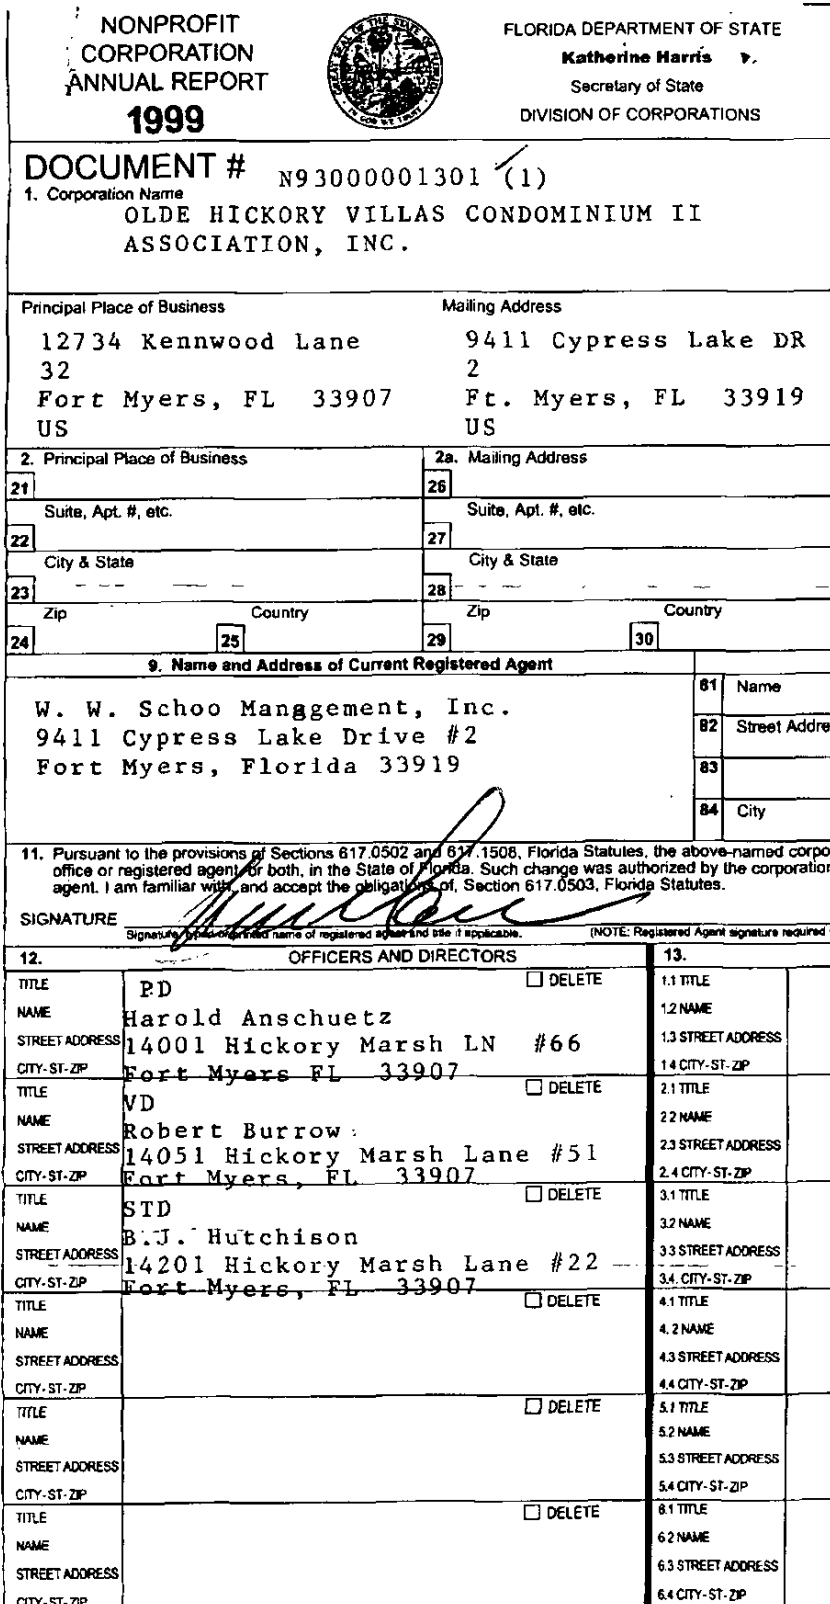 NONPROFIT
CORPORATION
ANNUAL REPORT
1999
GREAT SEAL OF THE STATE OF FLORIDA
IN GOD WE TRUST
FLORIDA DEPARTMENT OF STATE
Katherine Harris
Secretary of State
DIVISION OF CORPORATIONS
DOCUMENT # N93000001301 (1)
1. Corporation Name
OLDE HICKORY VILLAS CONDOMINIUM II
ASSOCIATION, INC.
Principal Place of Business
12734 Kennwood Lane
32
Fort Myers, FL 33907
US
Mailing Address
9411 Cypress Lake DR
2
Ft. Myers, FL 33919
US
2. Principal Place of Business
21
Suite, Apt. #, etc.
22
City & State
23
Zip
24
Country
25
2a. Mailing Address
26
Suite, Apt. #, etc.
27
City & State
28
Zip
29
Country
30
9. Name and Address of Current Registered Agent
W. W. Schoo Management, Inc.
9411 Cypress Lake Drive #2
Fort Myers, Florida 33919
81 Name
82 Street Addre
83
84 City
11. Pursuant to the provisions of Sections 617.0502 and 617.1508, Florida Statutes, the above-named corpo
office or registered agent, or both, in the State of Florida. Such change was authorized by the corporation
agent. I am familiar with, and accept the obligations of, Section 617.0503, Florida Statutes.
SIGNATURE
Signature, typed or printed name of registered agent and title if applicable. (NOTE: Registered Agent signature required
12. OFFICERS AND DIRECTORS
13.
TITLE PD DELETE
NAME Harold Anschuetz
STREET ADDRESS 14001 Hickory Marsh LN #66
CITY-ST-ZIP Fort Myers FL 33907
1.1 TITLE
1.2 NAME
1.3 STREET ADDRESS
1.4 CITY-ST-ZIP
TITLE VD DELETE
NAME Robert Burrow
STREET ADDRESS 14051 Hickory Marsh Lane #51
CITY-ST-ZIP Fort Myers, FL 33907
2.1 TITLE
2.2 NAME
2.3 STREET ADDRESS
2.4 CITY-ST-ZIP
TITLE STD DELETE
NAME B.J. Hutchison
STREET ADDRESS 14201 Hickory Marsh Lane #22
CITY-ST-ZIP Fort Myers, FL 33907
3.1 TITLE
3.2 NAME
3.3 STREET ADDRESS
3.4. CITY-ST-ZIP
TITLE DELETE
NAME
STREET ADDRESS
CITY-ST-ZIP
4.1 TITLE
4.2 NAME
4.3 STREET ADDRESS
4.4 CITY-ST-ZIP
TITLE DELETE
NAME
STREET ADDRESS
CITY-ST-ZIP
5.1 TITLE
5.2 NAME
5.3 STREET ADDRESS
5.4 CITY-ST-ZIP
TITLE DELETE
NAME
STREET ADDRESS
CITY-ST-ZIP
6.1 TITLE
6.2 NAME
6.3 STREET ADDRESS
6.4 CITY-ST-ZIP